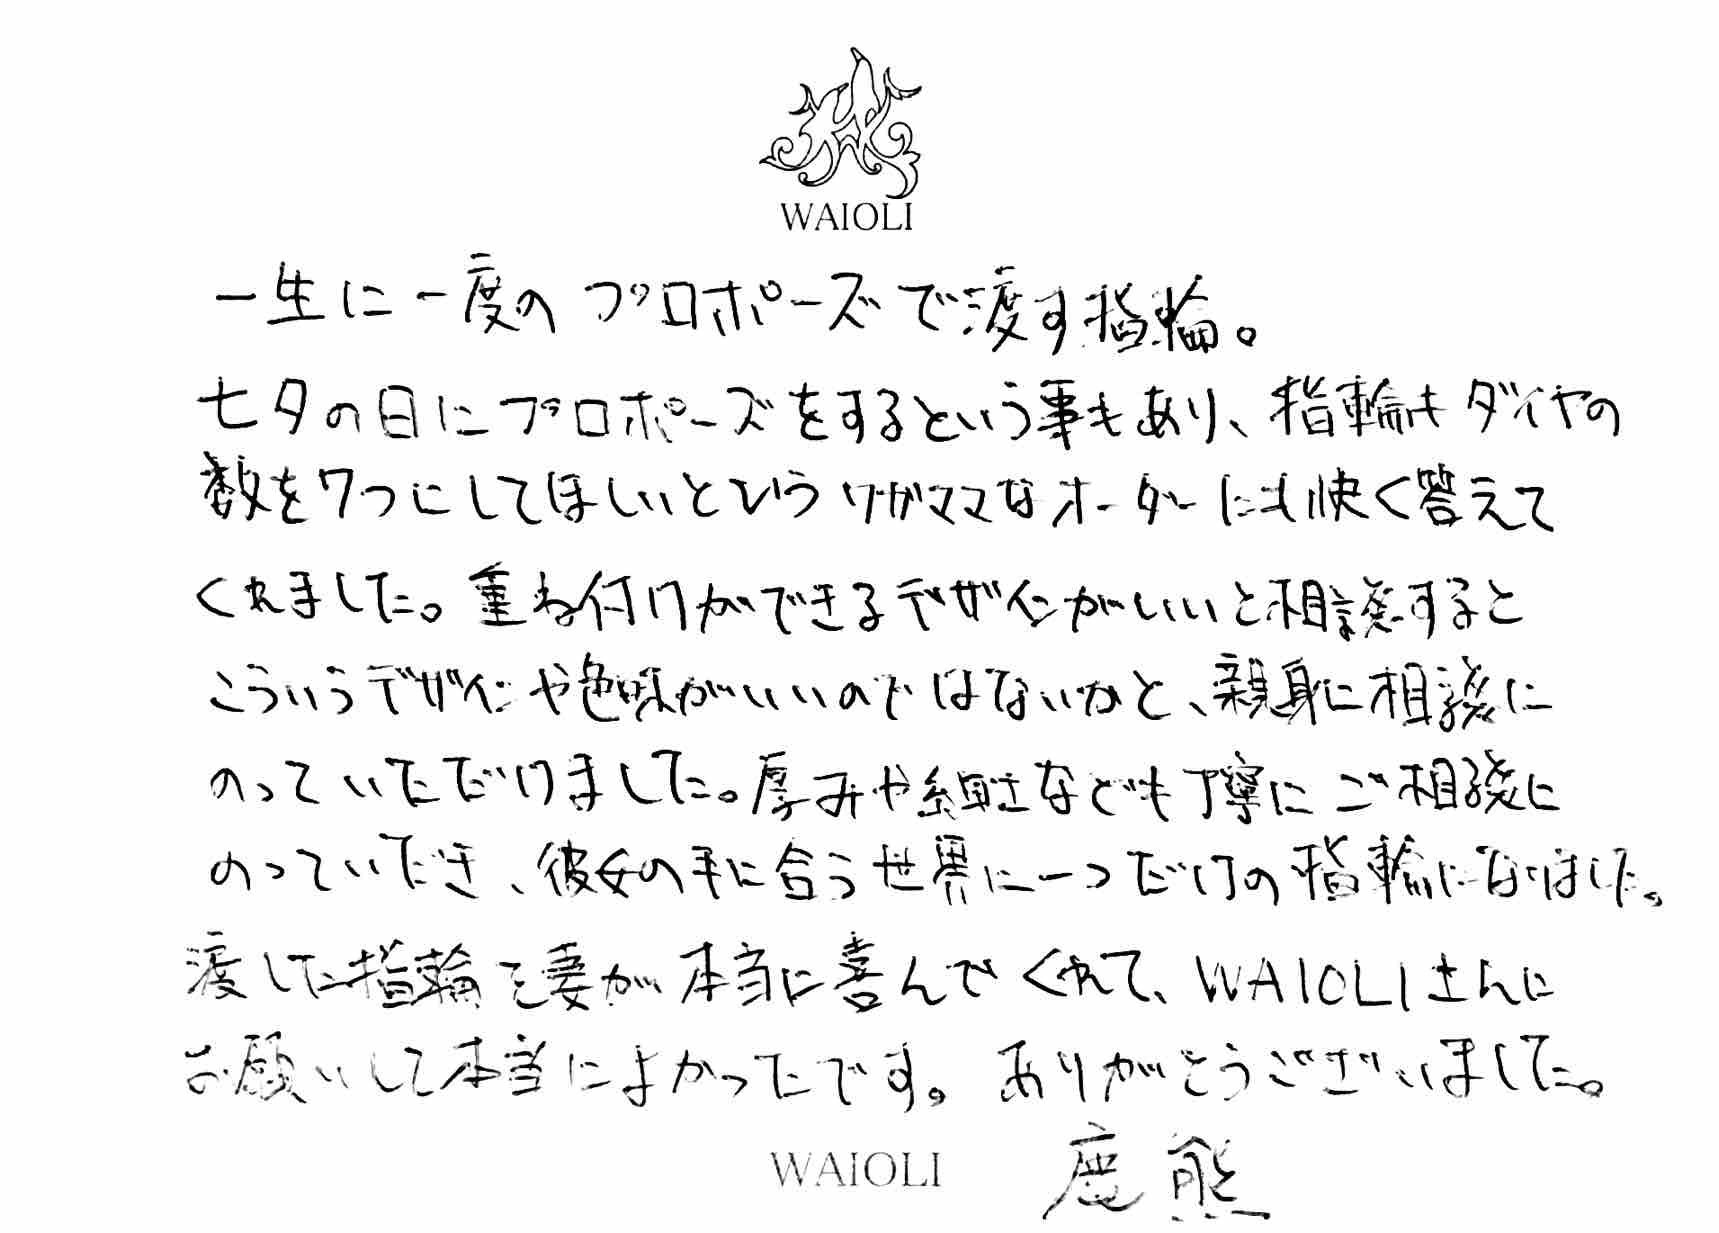 WAIOLI
一生に一度のプロポーズで渡す指輪。
七夕の日にプロポーズをするという事もあり、指輪もダイヤの
数を7つにしてほしいというワガママなオーダーにも快く答えて
くれました。重ね付けができるデザインがいいと相談すると
こういうデザインや色味がいいのではないかと、親身に相談に
のっていただけました。厚みや細さなども丁寧にご相談に
のっていだき、彼女の手に合う世界に一つだけの指輪になりました。
渡した指輪を妻が本当に喜んでくれて、WAIOLIさんに
お願いして本当によかったです。ありがとうございました。
WAIOLI 鹿熊